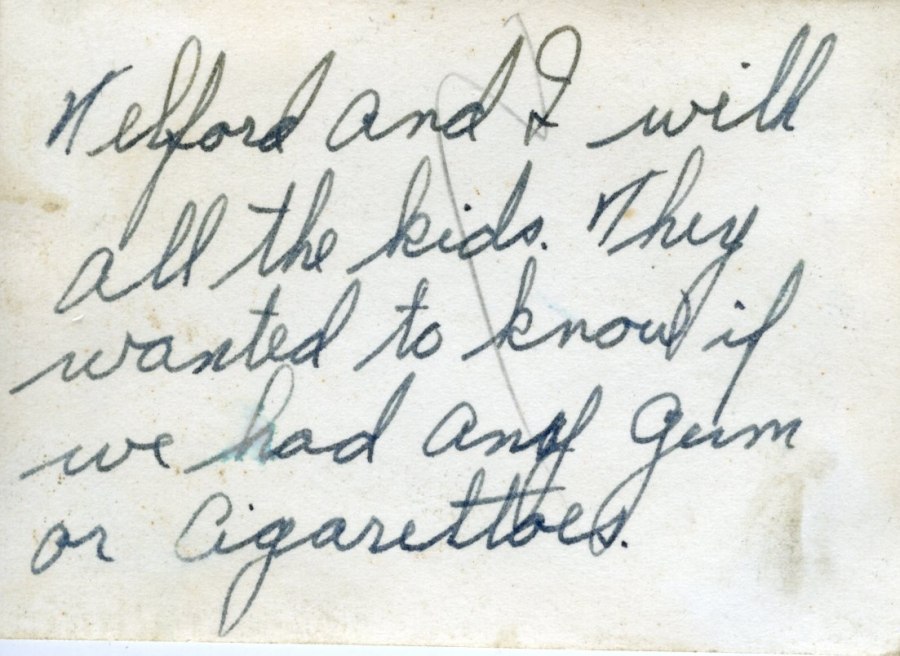 Telford and I will
all the kids. They
wanted to know if
we had any gum
or cigarettoes.